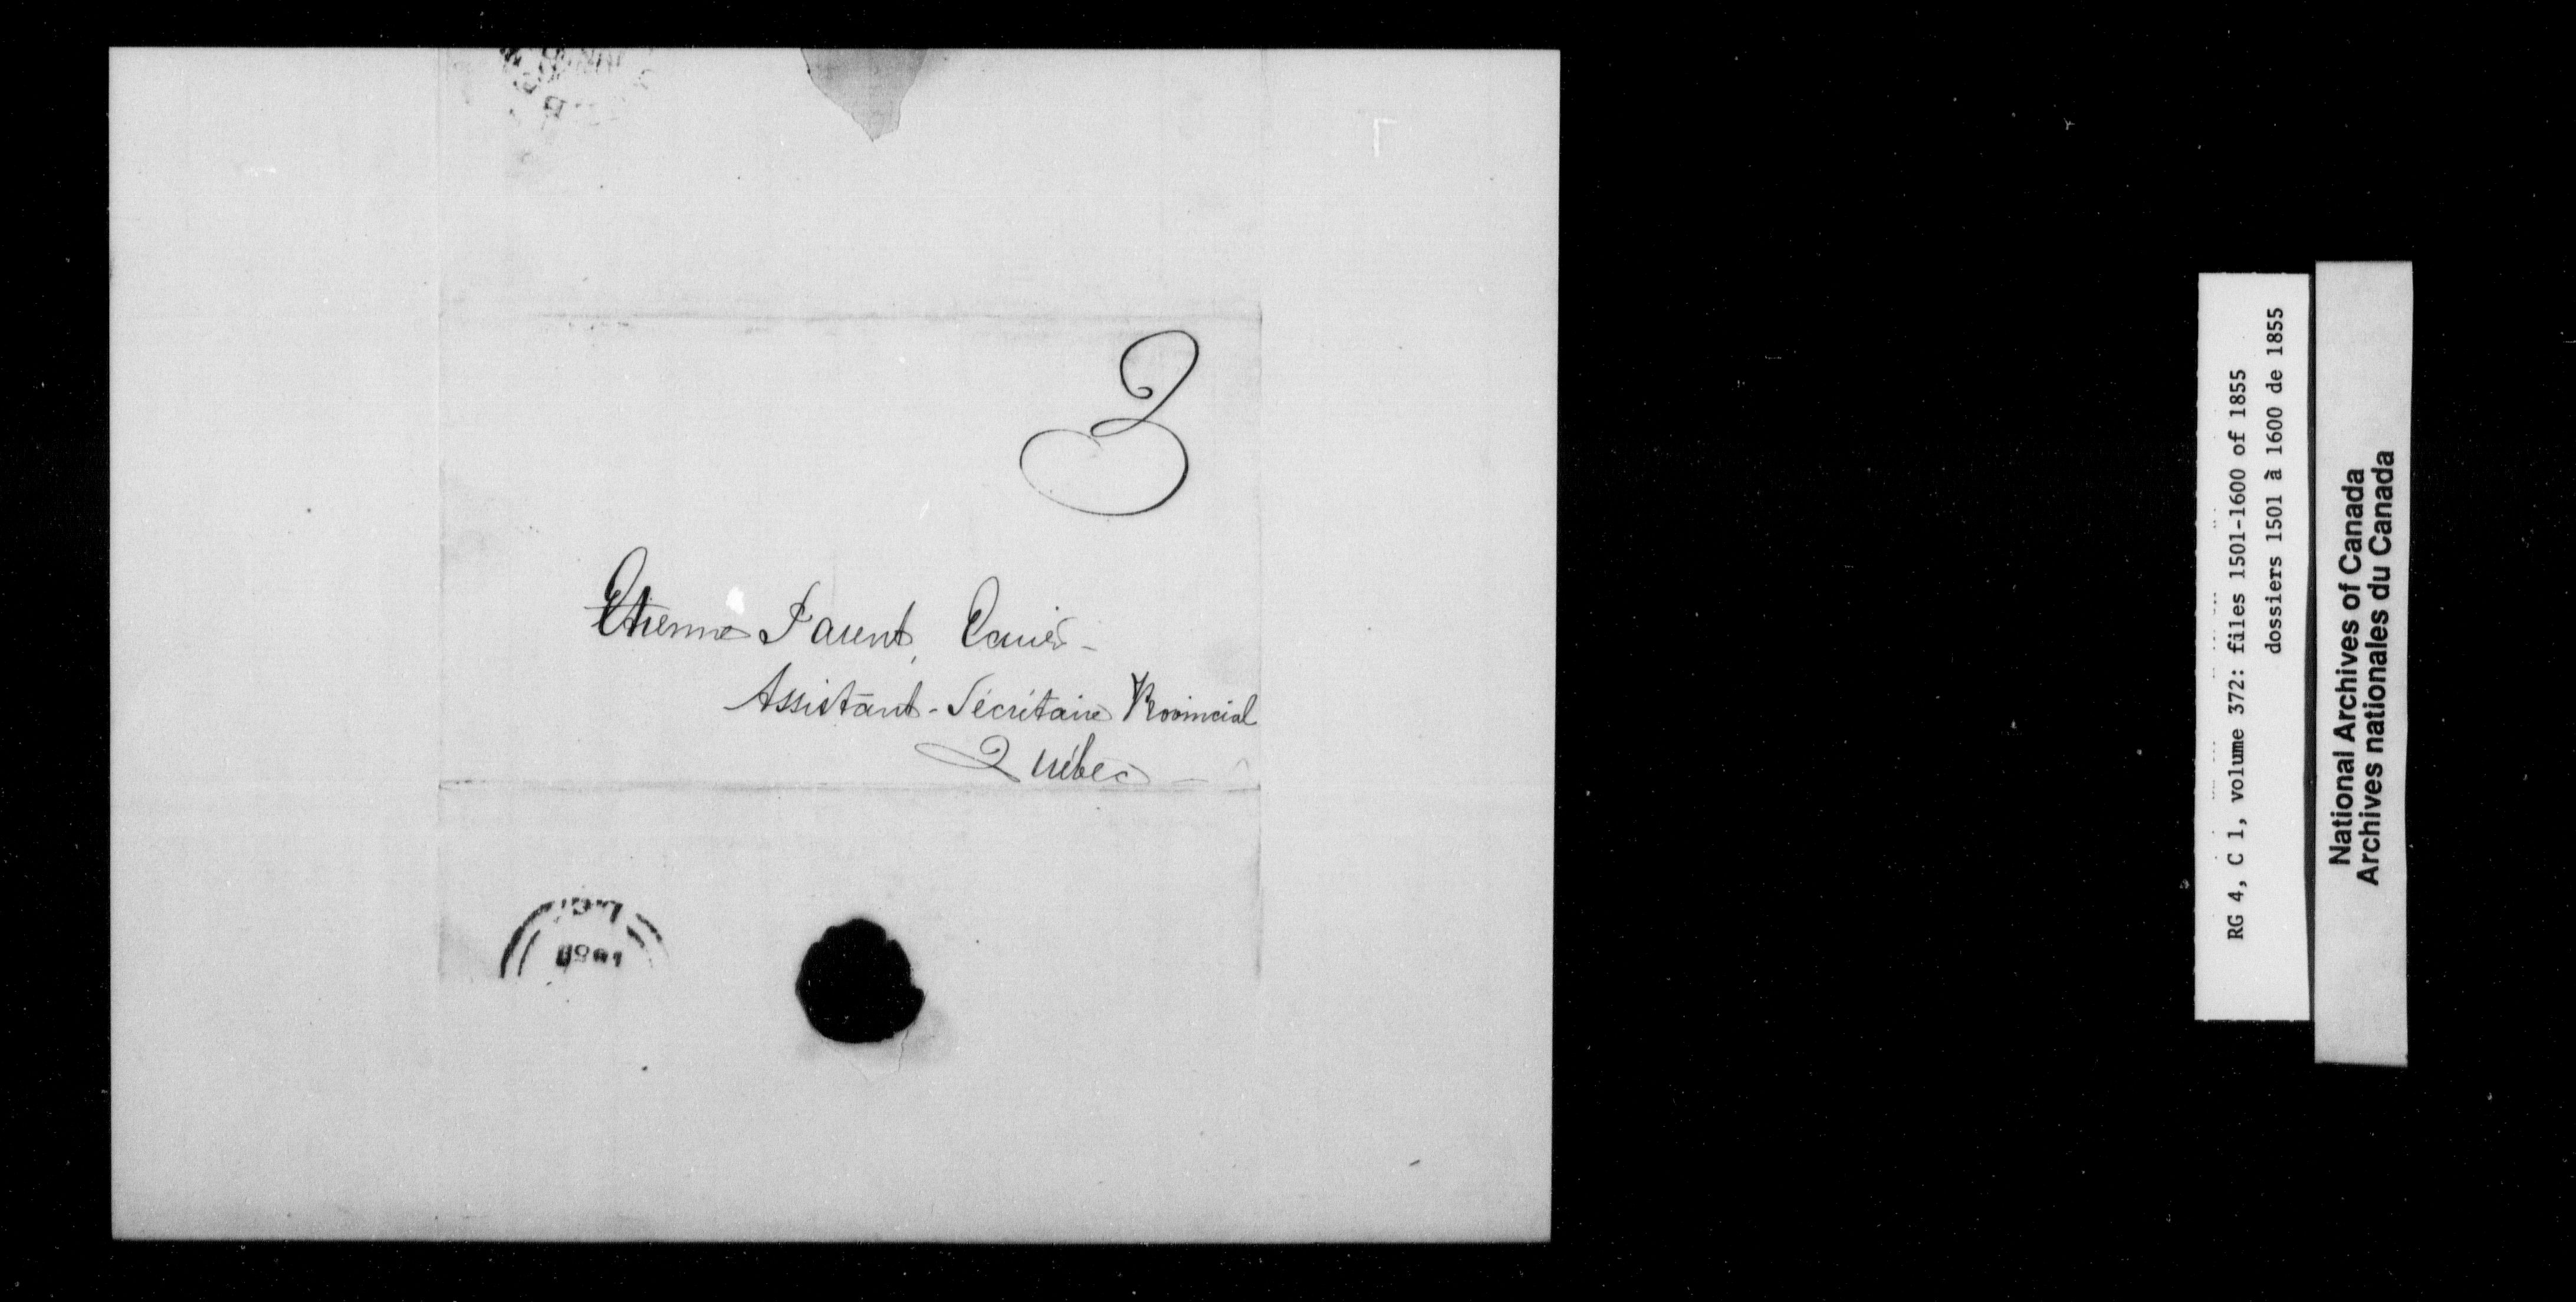 3
Etienne Parent, Ecuier -
Assistant - Sécrétaire Provincial
Québec -
L.C.
RG 4, C 1, volume 372: files 1501-1600 of 1855
dossiers 1501 à 1600 de 1855
National Archives of Canada
Archives nationales du Canada